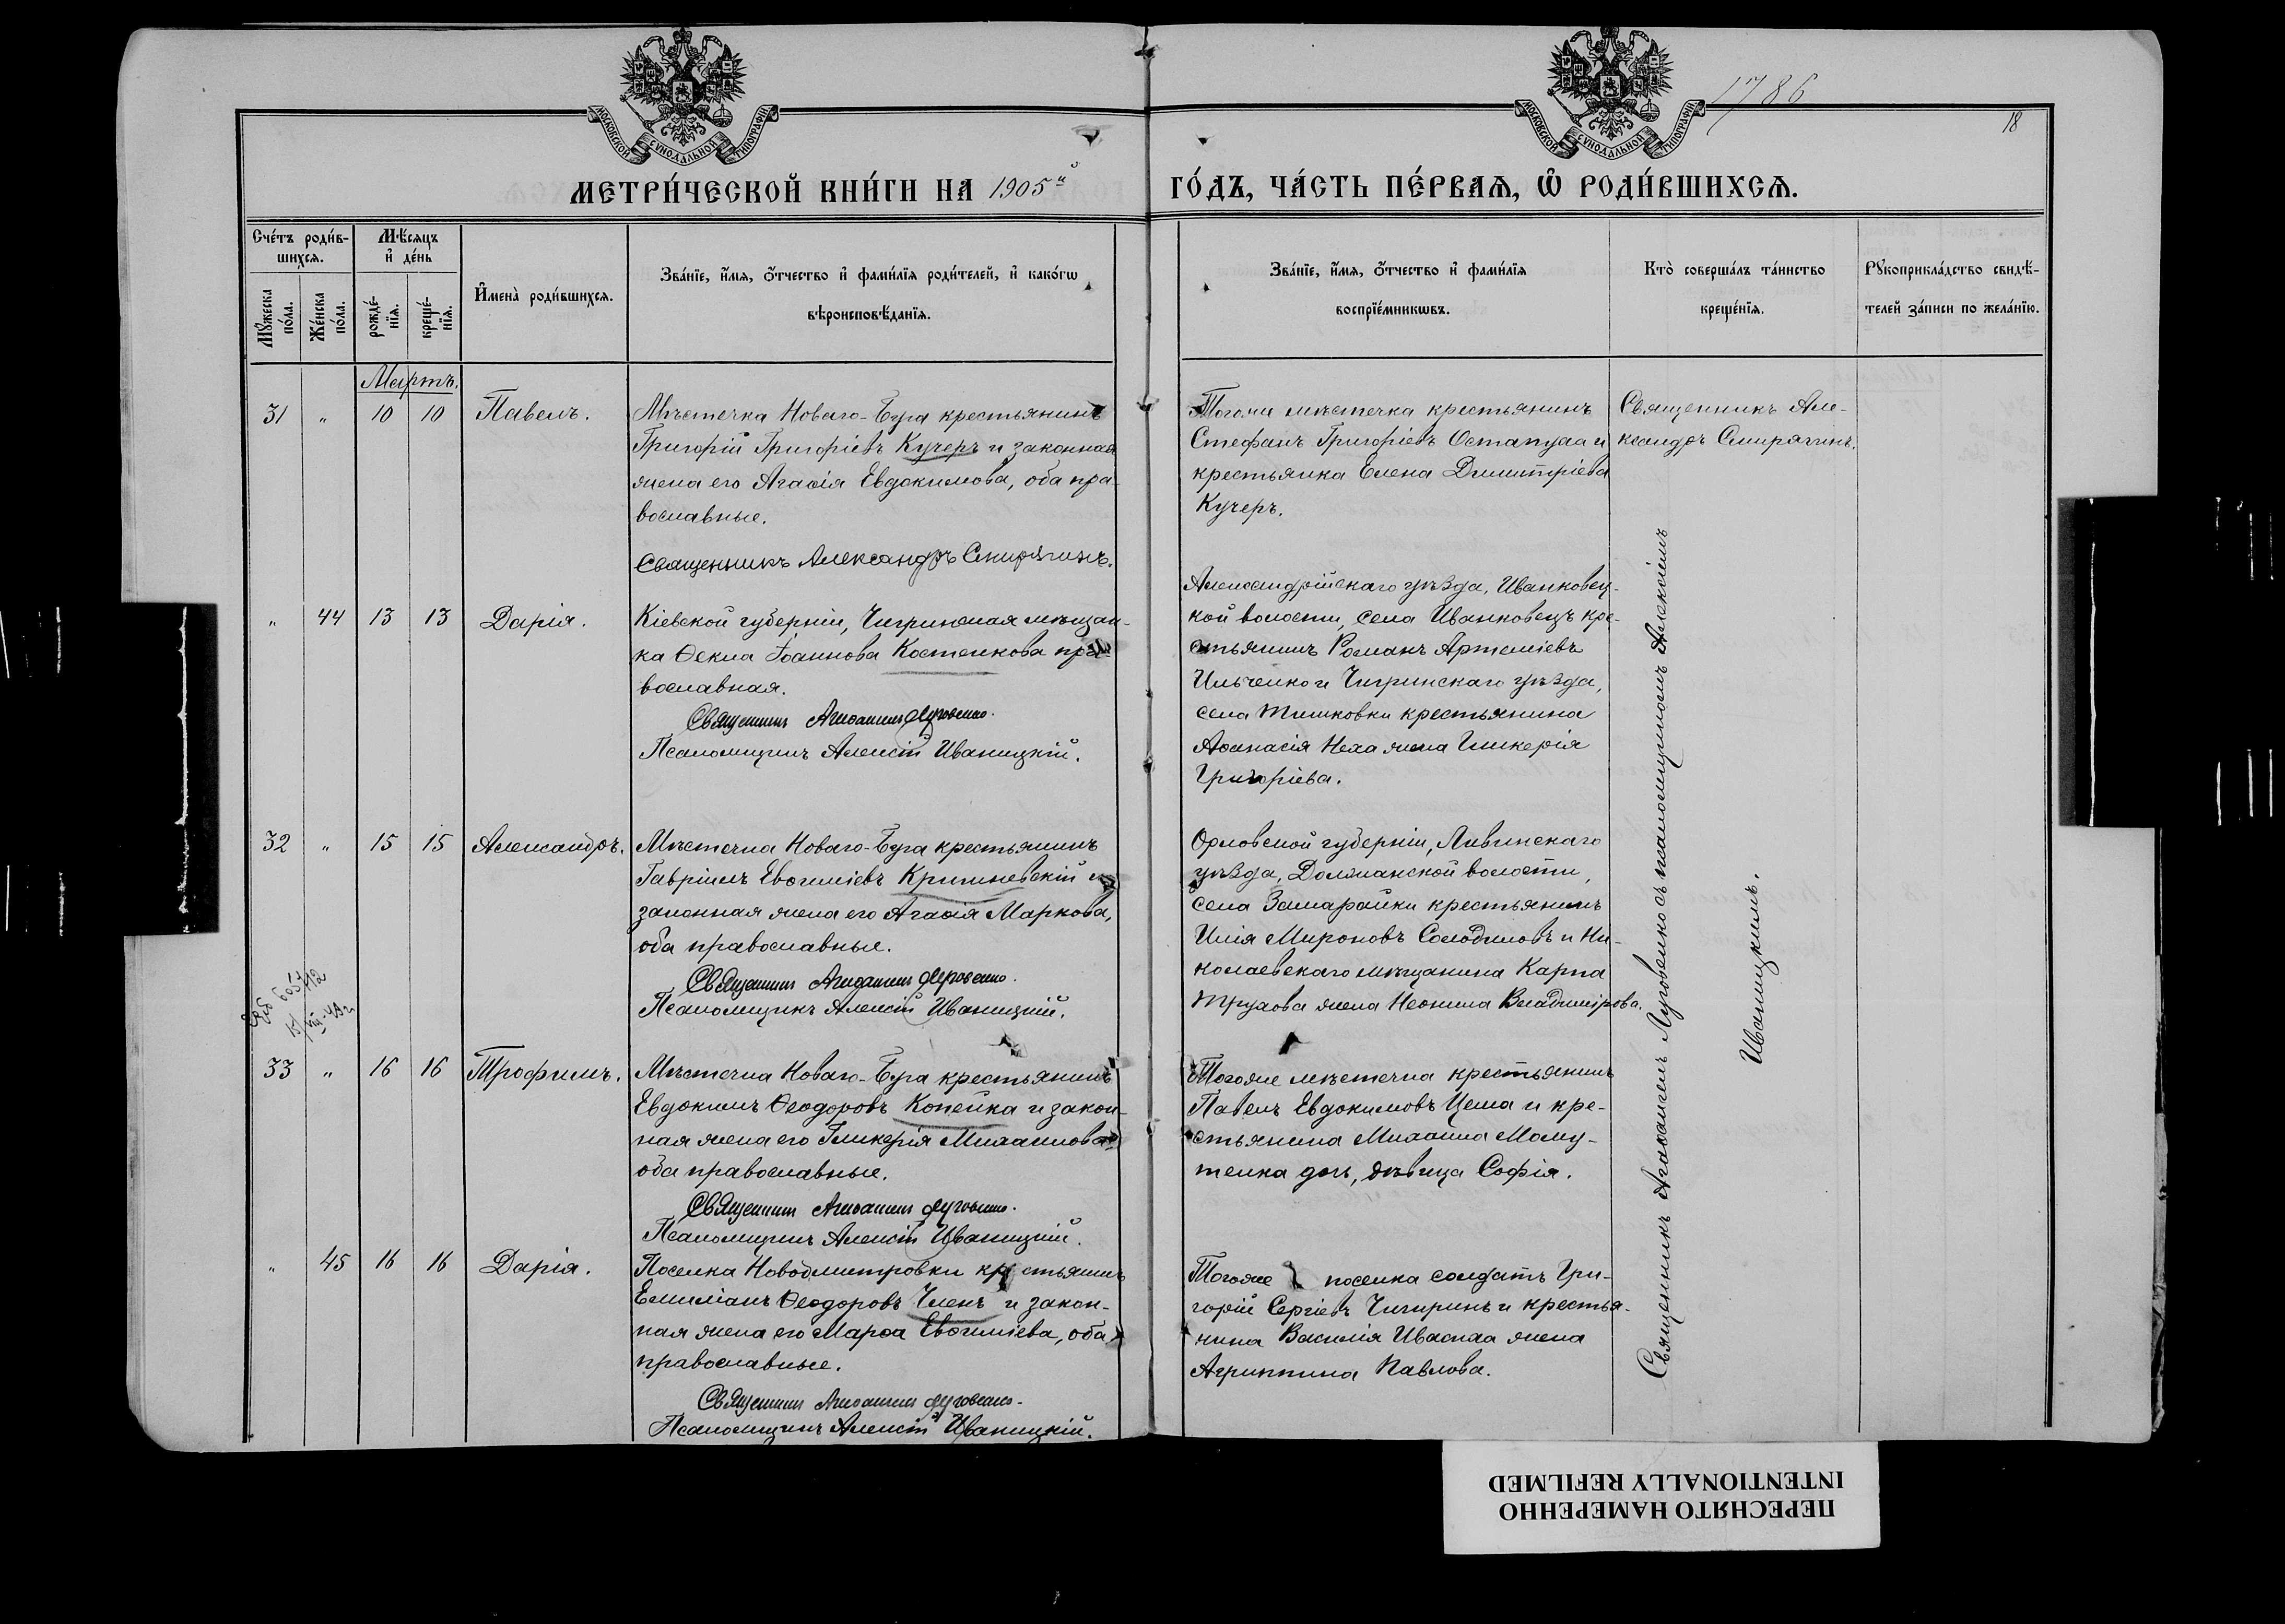 1786
18
МОСКОВСКОЙ СѴНОДАЛЬНОЙ ТИПОГРАФІИ
МОСКОВСКОЙ СѴНОДАЛЬНОЙ ТИПОГРАФІИ
МЕТРИ́ЧЕСКОЙ КНИ́ГИ НА 1905й
ГО́ДЪ, ЧА́СТЬ ПЕ́РВАЯ, Ѿ РОДИ́ВШИХСЯ.
Сче́тъ роди́в-
шихся.
Мꙋ́жеска по́ла.
Же́нска по́ла.
Мѣ́сяцъ
и҆ де́нь
рожде́-
нїя.
креще́-
нїя.
И҆мена̀ роди́вшихся.
Зва́нїе, и҆́мя, ѻ҆́тчество и҆ фами́лїя роди́телей, и҆ како́гѡ
вѣроисповѣ́данїя.
Зва́нїе, и҆́мя, ѻ҆́тчество и҆ фами́лїя
воспрїе́мникѡвъ.
Кто̀ соверша́лъ та́инство
креще́нїя.
Рꙋкоприкла́дство свидѣ́-
телей за́писи по жела́нїю.
Мартъ.
31 " 10 10 Павелъ.
Мѣстечка Новаго-Буга крестьянинъ
Григорій Григоріевъ Кучеръ и законная
жена его Агаѳія Евдокимова, оба пра-
вославные.
Священникъ Александръ Смирягинъ.
Тогоже мѣстечка крестьянинъ
Стефанъ Григоріевъ Остапуха и
крестьянка Елена Димитріева
Кучеръ.
Священникъ Але-
ксандръ Смирягинъ.
" 44 13 13 Дарія.
Кіевской губерніи, Чигринская мѣщан-
ка Ѳекла Іоаннова Костенкова пра-
вославная.
Священникъ Агаѳангелъ Луговенко.
Псаломщикъ Алексій Иваницкій.
Александрійскаго уѣзда, Иванковец-
кой волости, села Иванковецъ кре-
стьянинъ Романъ Артеміевъ
Ильченко и Чигринскаго уѣзда,
села Тимковки крестьянина
Аѳанасія Неха жена Гликерія
Григоріева.
32 " 15 15 Александръ.
Мѣстечка Новаго-Буга крестьянинъ
Гавріилъ Евѳиміевъ Кришневскій и
законная жена его Агаѳія Маркова,
оба православные.
Священникъ Агаѳангелъ Луговенко.
Псаломщикъ Алексій Иваницкій.
Орловской губерніи, Ливенскаго
уѣзда, Должанской волости,
села Замарайки крестьянинъ
Илія Мироновъ Солодиловъ и Ни-
колаевскаго мѣщанина Карпа
Трухова жена Неонила Владимірова.
33 " 16 16 Трофимъ.
Мѣстечка Новаго-Буга крестьянинъ
Евдокимъ Ѳеодоровъ Копейка и закон-
ная жена его Гликерія Михаилова,
оба православные.
Священникъ Агаѳангелъ Луговенко.
Псаломщикъ Алексій Иваницкій.
Тогоже мѣстечка крестьянинъ
Павелъ Евдокимовъ Цема и кре-
стьянина Михаила Мому-
тенка дочь, дѣвица Софія.
" 45 16 16 Дарія.
Поселка Новодмитровки крестьянинъ
Емиліанъ Ѳеодоровъ Членъ и закон-
ная жена его Марѳа Евѳиміева, оба
православные.
Священникъ Агаѳангелъ Луговенко.
Псаломщикъ Алексій Иваницкій.
Тогоже поселка солдатъ Гри-
горій Сергіевъ Чигиринъ и крестья-
нина Василія Ивасиха жена
Агриппина Павлова.
Священникъ Агаѳангелъ Луговенко съ псаломщикомъ Алексіемъ
Иваницкимъ.
ПЕРЕСНЯТО НАМЕРЕННО
INTENTIONALLY REFILMED